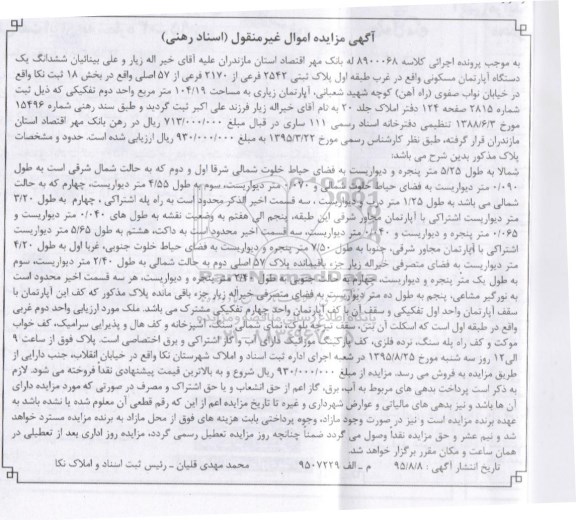 آگهی مزایده اموال غیرمنقول (اسناد رهنی)
به موجب پرونده اجرائی کلاسه ۸۹۰۰۰۶۸ له بانک مهر اقتصاد استان مازندران علیه آقای خیر اله زیار و علی بینائیان ششدانگ یک
دستگاه آپارتمان مسکونی واقع در غرب طبقه اول پلاک ثبتی ۲۵۴۲ فرعی از ۲۱۷۰ فرعی از ۵۷ اصلی واقع در بخش ۱۸ ثبت نکا واقع
در خیابان نواب صفوی (راه آهن) کوچه شهید شعبانی، آپارتمان زیاری به مساحت ۱۰۴/۱۹ متر مربع واحد دوم تفکیکی که ذیل ثبت
شماره ۲۸۱۵ صفحه ۱۲۴ دفتر املاک جلد ۲۰ به نام آقای خیراله زیار فرزند علی اکبر ثبت گردید و طبق سند رهنی شماره ۱۵۴۹۶
مورخ ۱۳۸۸/۶/۳ تنظیمی دفترخانه اسناد رسمی ۱۱۱ ساری در قبال مبلغ ۷۱۳/۰۰۰/۰۰۰ ریال در رهن بانک مهر اقتصاد استان
مازندران قرار گرفته، طبق نظر کارشناس رسمی مورخ ۱۳۹۵/۳/۲۲ به مبلغ ۹۳۰/۰۰۰/۰۰۰ ریال ارزیابی شده است. حدود و مشخصات
پلاک مذکور بدین شرح می باشد:
شمالا به طول ۵/۲۵ متر پنجره و دیواریست به فضای حیاط خلوت شمالی شرقا اول و دوم که به حالت شمال شرقی است به طول
۰/۰۹۰ متر دیواریست به فضای حیاط خلوت شمالی و ۰/۰۷۰ متر دیواریست، سوم به طول ۴/۵۵ متر دیواریست، چهارم که به حالت
شمالی می باشد به طول ۱/۲۵ متر درب و دیواریست ، سه قسمت اخیر الذکر محدود است به راه پله اشتراکی ، چهارم به طول ۳/۲۰
متر دیواریست اشتراکی با آپارتمان مجاور شرقی این طبقه، پنجم الی هفتم به وضعیت نقشه به طول های ۰/۰۴۰ متر دیواریست و
۰/۰۶۵ متر پنجره و دیواریست و ۰/۰۴۰ متر دیواریست، سه قسمت اخیر محدود است به داکت، هشتم به طول ۵/۶۵ متر دیواریست
اشتراکی با آپارتمان مجاور شرقی، جنوبا به طول ۷/۵۰ متر پنجره و دیواریست به فضای حیاط خلوت جنوبی، غربا اول به طول ۴/۲۰
متر دیواریست به فضای متصرفی خیراله زیار جزء باقیمانده پلاک ۵۷ اصلی دوم به حالت شمالی به طول ۲/۴۰ متر دیواریست، سوم
به طول یک متر پنجره و دیواریست، چهارم به حالت جنوبی به طول ۲/۴۰ متر پنجره و دیواریست، هر سه قسمت اخیر محدود است
به نورگیر مشاعی، پنجم به طول ده متر دیواریست به فضای متصرفی خیراله زیار جزء باقی مانده پلاک مذکور که کف این آپارتمان با
سقف آپارتمان واحد اول تفکیکی و سقف آن با کف آپارتمان واحد چهارم تفکیکی مشترک می باشد. ملک مورد ارزیابی واحد دوم غربی
واقع در طبقه اول است که اسکلت آن بتن، سقف تیرچه بلوک، نمای شمالی سنگ، آشپزخانه و کف هال و پذیرایی سرامیک، کف خواب
موکت و کف راه پله سنگ، نرده فلزی، کف پارکینگ موزائیک دارای آب و گاز اشتراکی و برق اختصاصی است. پلاک فوق از ساعت ۹
الی ۱۲ روز سه شنبه مورخ ۱۳۹۵/۸/۲۵ در شعبه اجرای اداره ثبت اسناد و املاک شهرستان نکا واقع در خیابان انقلاب، جنب دارایی از
طریق مزایده به فروش می رسد. مزایده از مبلغ ۹۳۰/۰۰۰/۰۰۰ ریال شروع و به بالاترین قیمت پیشنهادی نقدا فروخته می شود. لازم
به ذکر است پرداخت بدهی های مربوط به آب، برق، گاز اعم از حق انشعاب و یا حق اشتراک و مصرف در صورتی که مورد مزایده دارای
آن ها باشد و نیز بدهی های مالیاتی و عوارض شهرداری و غیره تا تاریخ مزایده اعم از این که رقم قطعی آن معلوم شده یا نشده باشد به
عهده برنده مزایده است و نیز در صورت وجود مازاد، وجوه پرداختی بابت هزینه های فوق از محل مازاد به برنده مزایده مسترد خواهد
شد و نیم عشر و حق مزایده نقداً وصول می گردد ضمناً چنانچه روز مزایده تعطیل رسمی گردد، مزایده روز اداری بعد از تعطیلی در
همان ساعت و مکان مقرر برگزار خواهد شد.
تاریخ انتشار آگهی : ۹۵/۸/۸ م - الف ۹۵۰۷۲۲۹ محمد مهدی قلیان - رئیس ثبت اسناد و املاک نکا